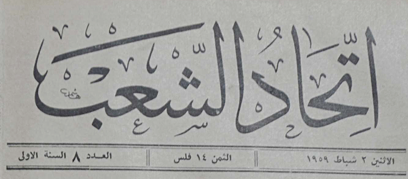 اتحاد الشعب
الاثنين ٢ شباط ١٩٥٩ الثمن ١٤ فلس العدد ٨ السنة الاولى